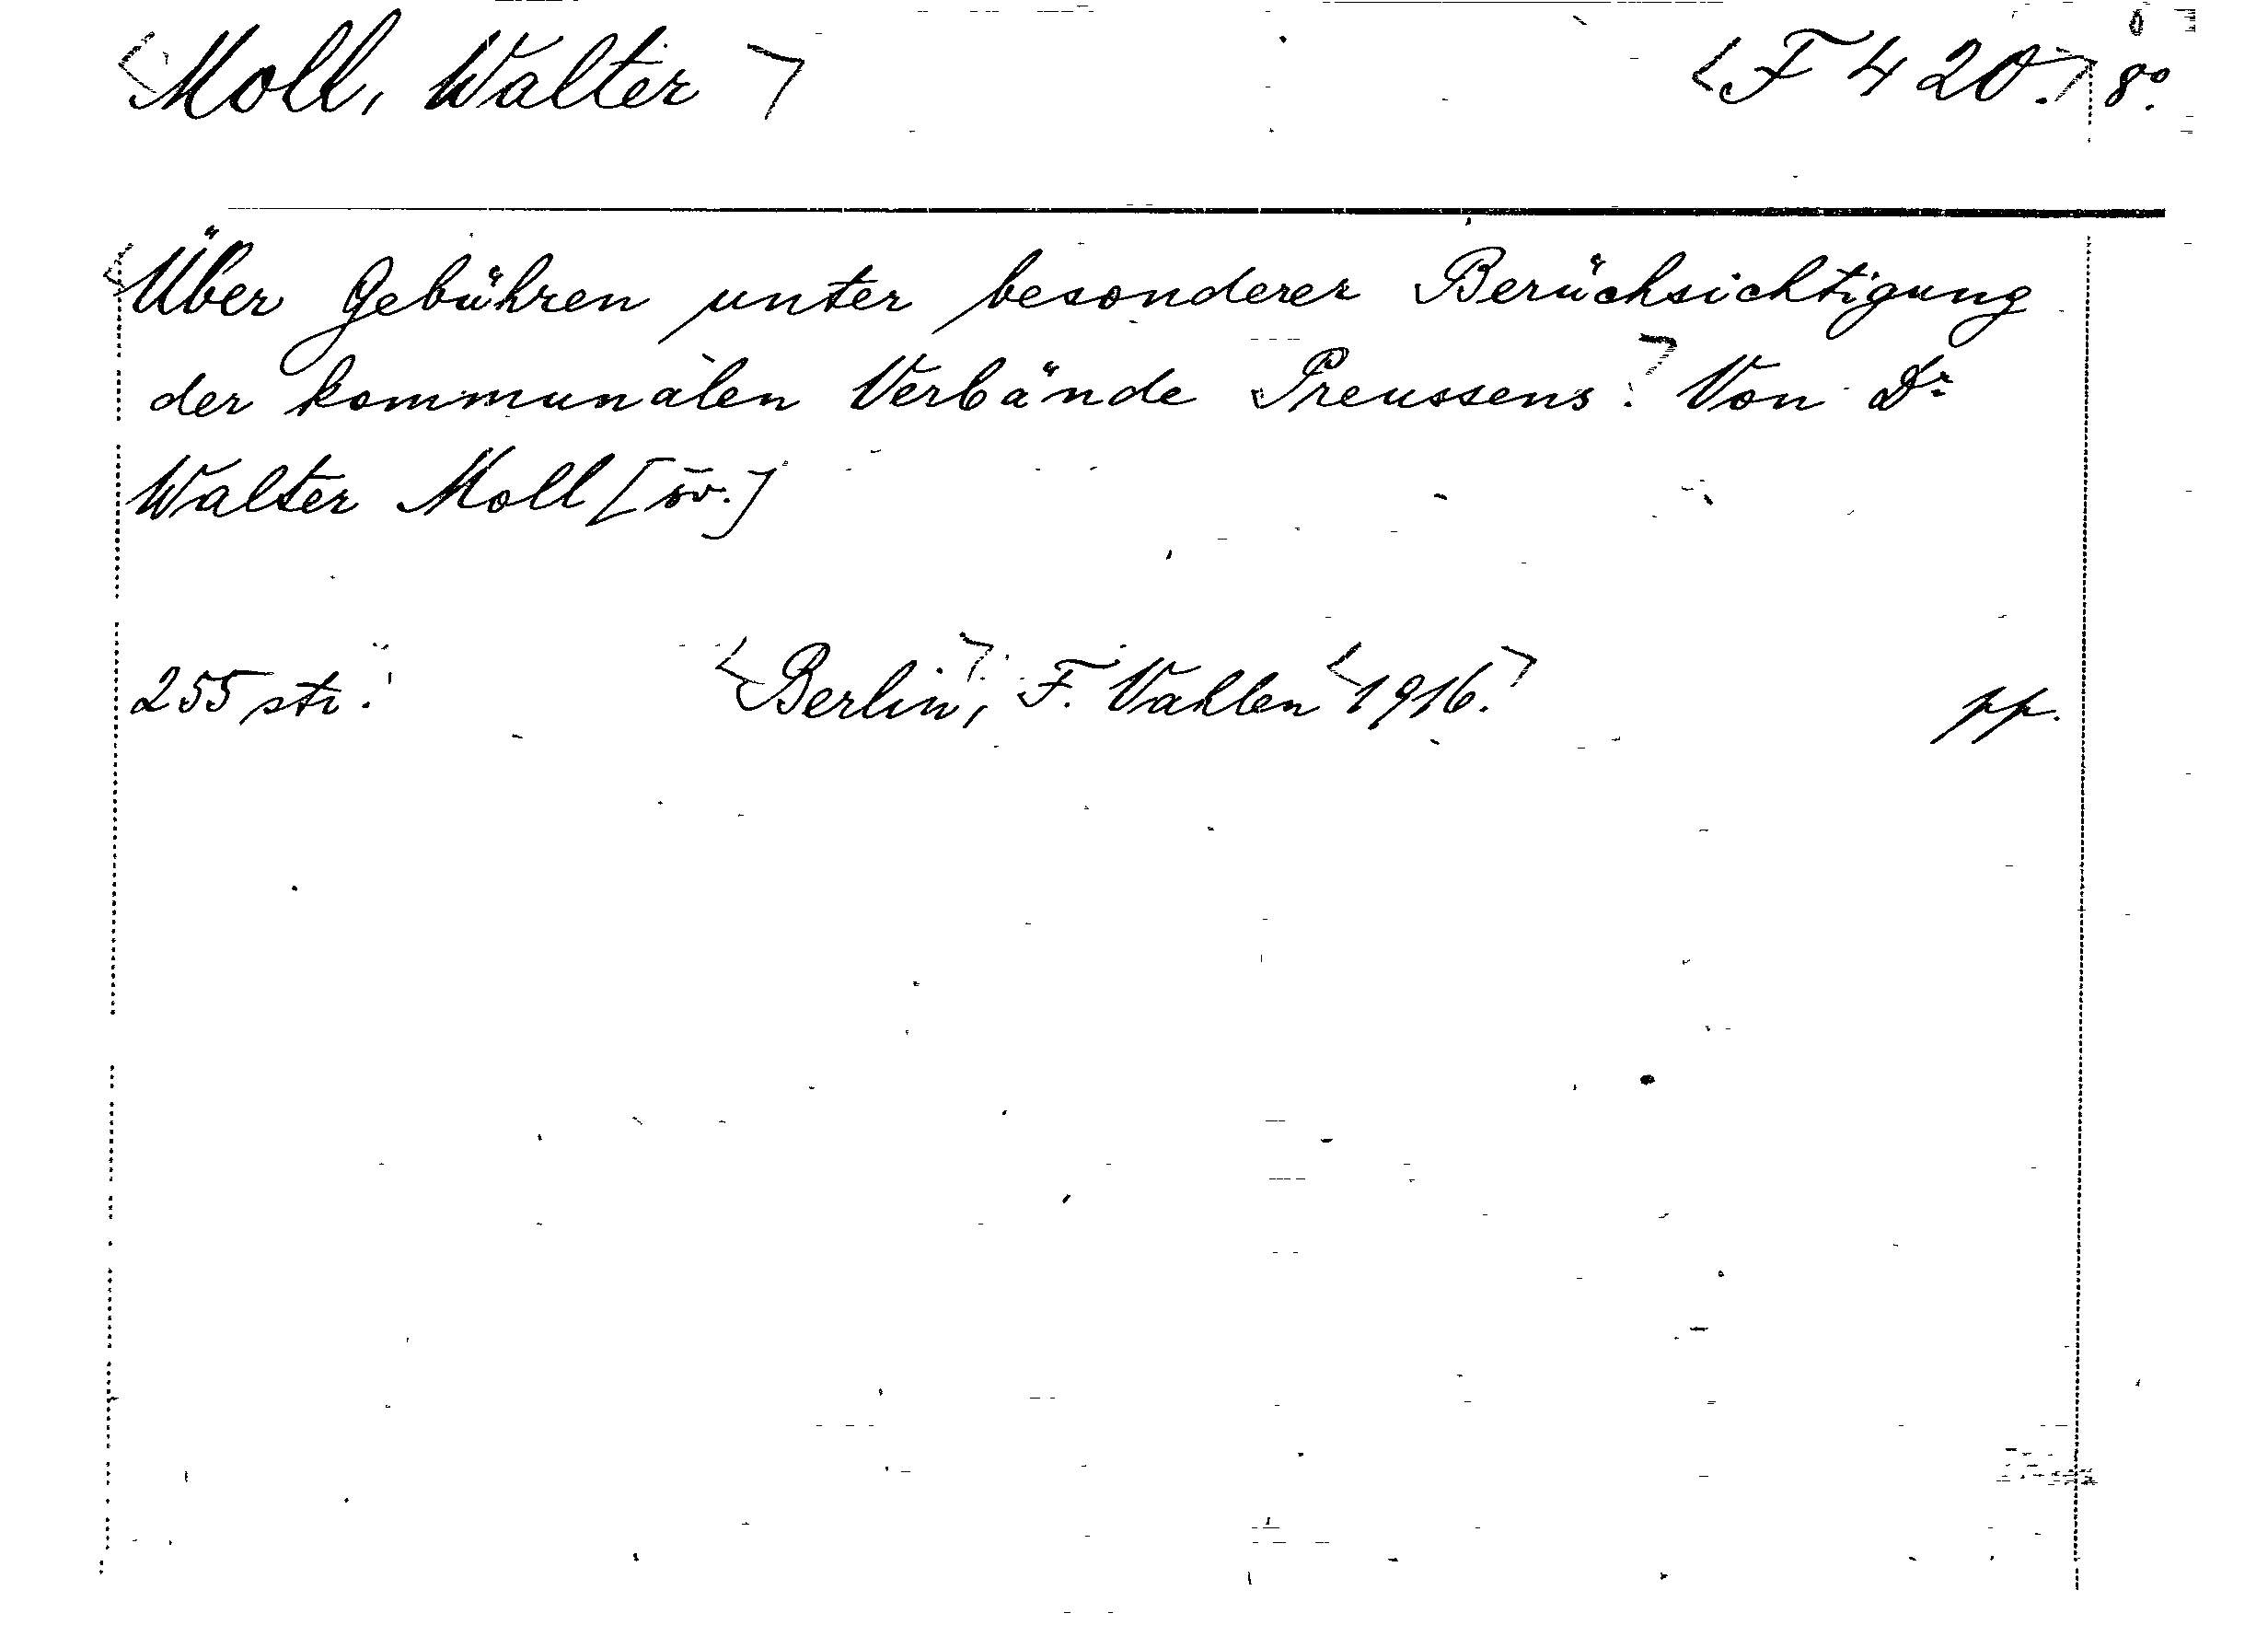 <Moll, Walter> <F 420.> 8°.
<Über Gebühren unter besonderer Berücksichtigung
der kommunalen Verbände Preussens.> Von Dr
Walter Moll
255 str. <Berlin>, F. Vahlen <1916.> pp.